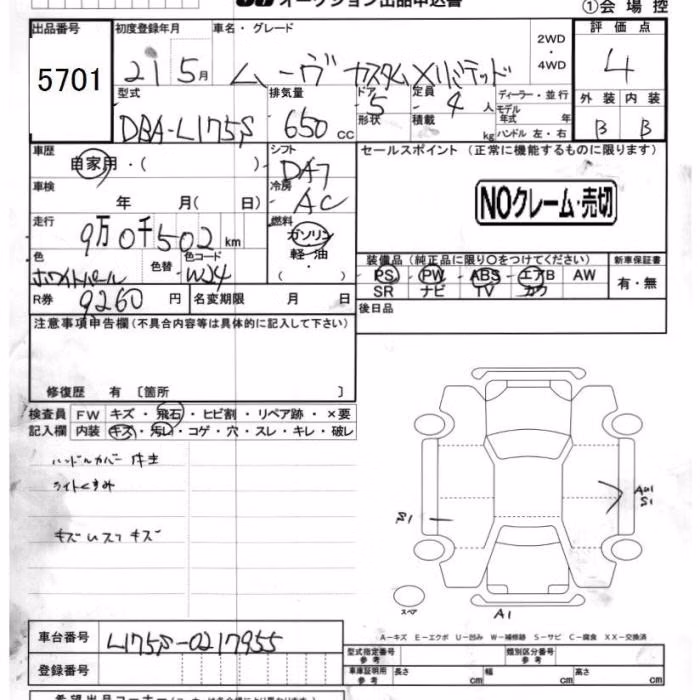 オークション出品申込書 ①会場控
出品番号 初度登録年月 車名・グレード 2WD・4WD 評価点
5701 21 5月 ムーヴ カスタムXリミテッド 4
型式 排気量 ドア 定員 ディーラー・並行 外装 内装
DBA-L175S 650cc 5 4人 モデル年式 年 B B
形状 積載 kg ハンドル 左・右
車歴 シフト セールスポイント (正常に機能するものに限ります)
自家用・( ) DAT
車検 冷房
年 月( 日) AC NOクレーム・売切
走行 燃料
9万0千502km ガソリン
軽・油
( )
色 色替 色コード 装備品(純正品に限り○をつけてください) 新車保証書
ホワイトパール W24 PS PW ABS エアB AW 有・無
SR ナビ TV カワ
R券 9260円 名変期限 月 日 後日品
注意事項申告欄(不具合内容等は具体的に記入して下さい)
修復歴 有 〔箇所 〕
検査員 FW キズ・飛石・ヒビ割・リペア跡・×要
記入欄 内装 キズ・汚レ・コゲ・穴・スレ・キレ・破レ
ハンドルカバー
ライトくすみ
キズ キズ
A1
S1
S1
スペア
A1
A-キズ E-エクボ U-凹み W-補修跡 S-サビ C-腐食 XX-交換済
車台番号 L175S-0217955
型式指定番号 参考 類別区分番号 参考
登録番号 車庫証明用 参考 長さ cm 幅 cm 高さ cm
希望出品コーナー